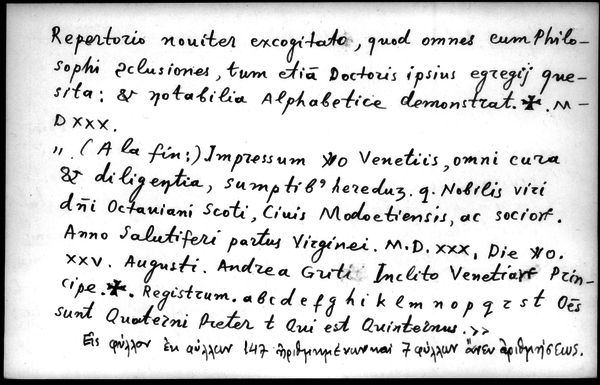 Repertorio nouiter excogitato, quod omnes cum Philo-
sophi ꝯclusiones, tum etiā Doctoris ipsius egregij que-
sita: & notabilia Alphabetice demonstrat. ✠. M-
D XXX.
„ (A la fin:) Impressum Venetiis, omni cura
& diligentia, sumptibꝰ hereduꝫ. q. Nobilis viri
dn̄i Octauiani Scoti, Ciuis Modoetiensis, ac socioꝝ.
Anno Salutiferi partus Virginei. M.D.XXX, Die
XXV. Augusti. Andrea Griti Inclito Venetiaꝝ Prin-
cipe. ✠. Registrum. a b c d e f g h i k l m n o p q r s t Oēs
sunt Quaterni Preter t Qui est Quinternus. >>
Εἰς φύλλον ἐκ φύλλων 147 ἠριθμημένων καὶ 7 φύλλων ἄνευ ἀριθμήσεως.